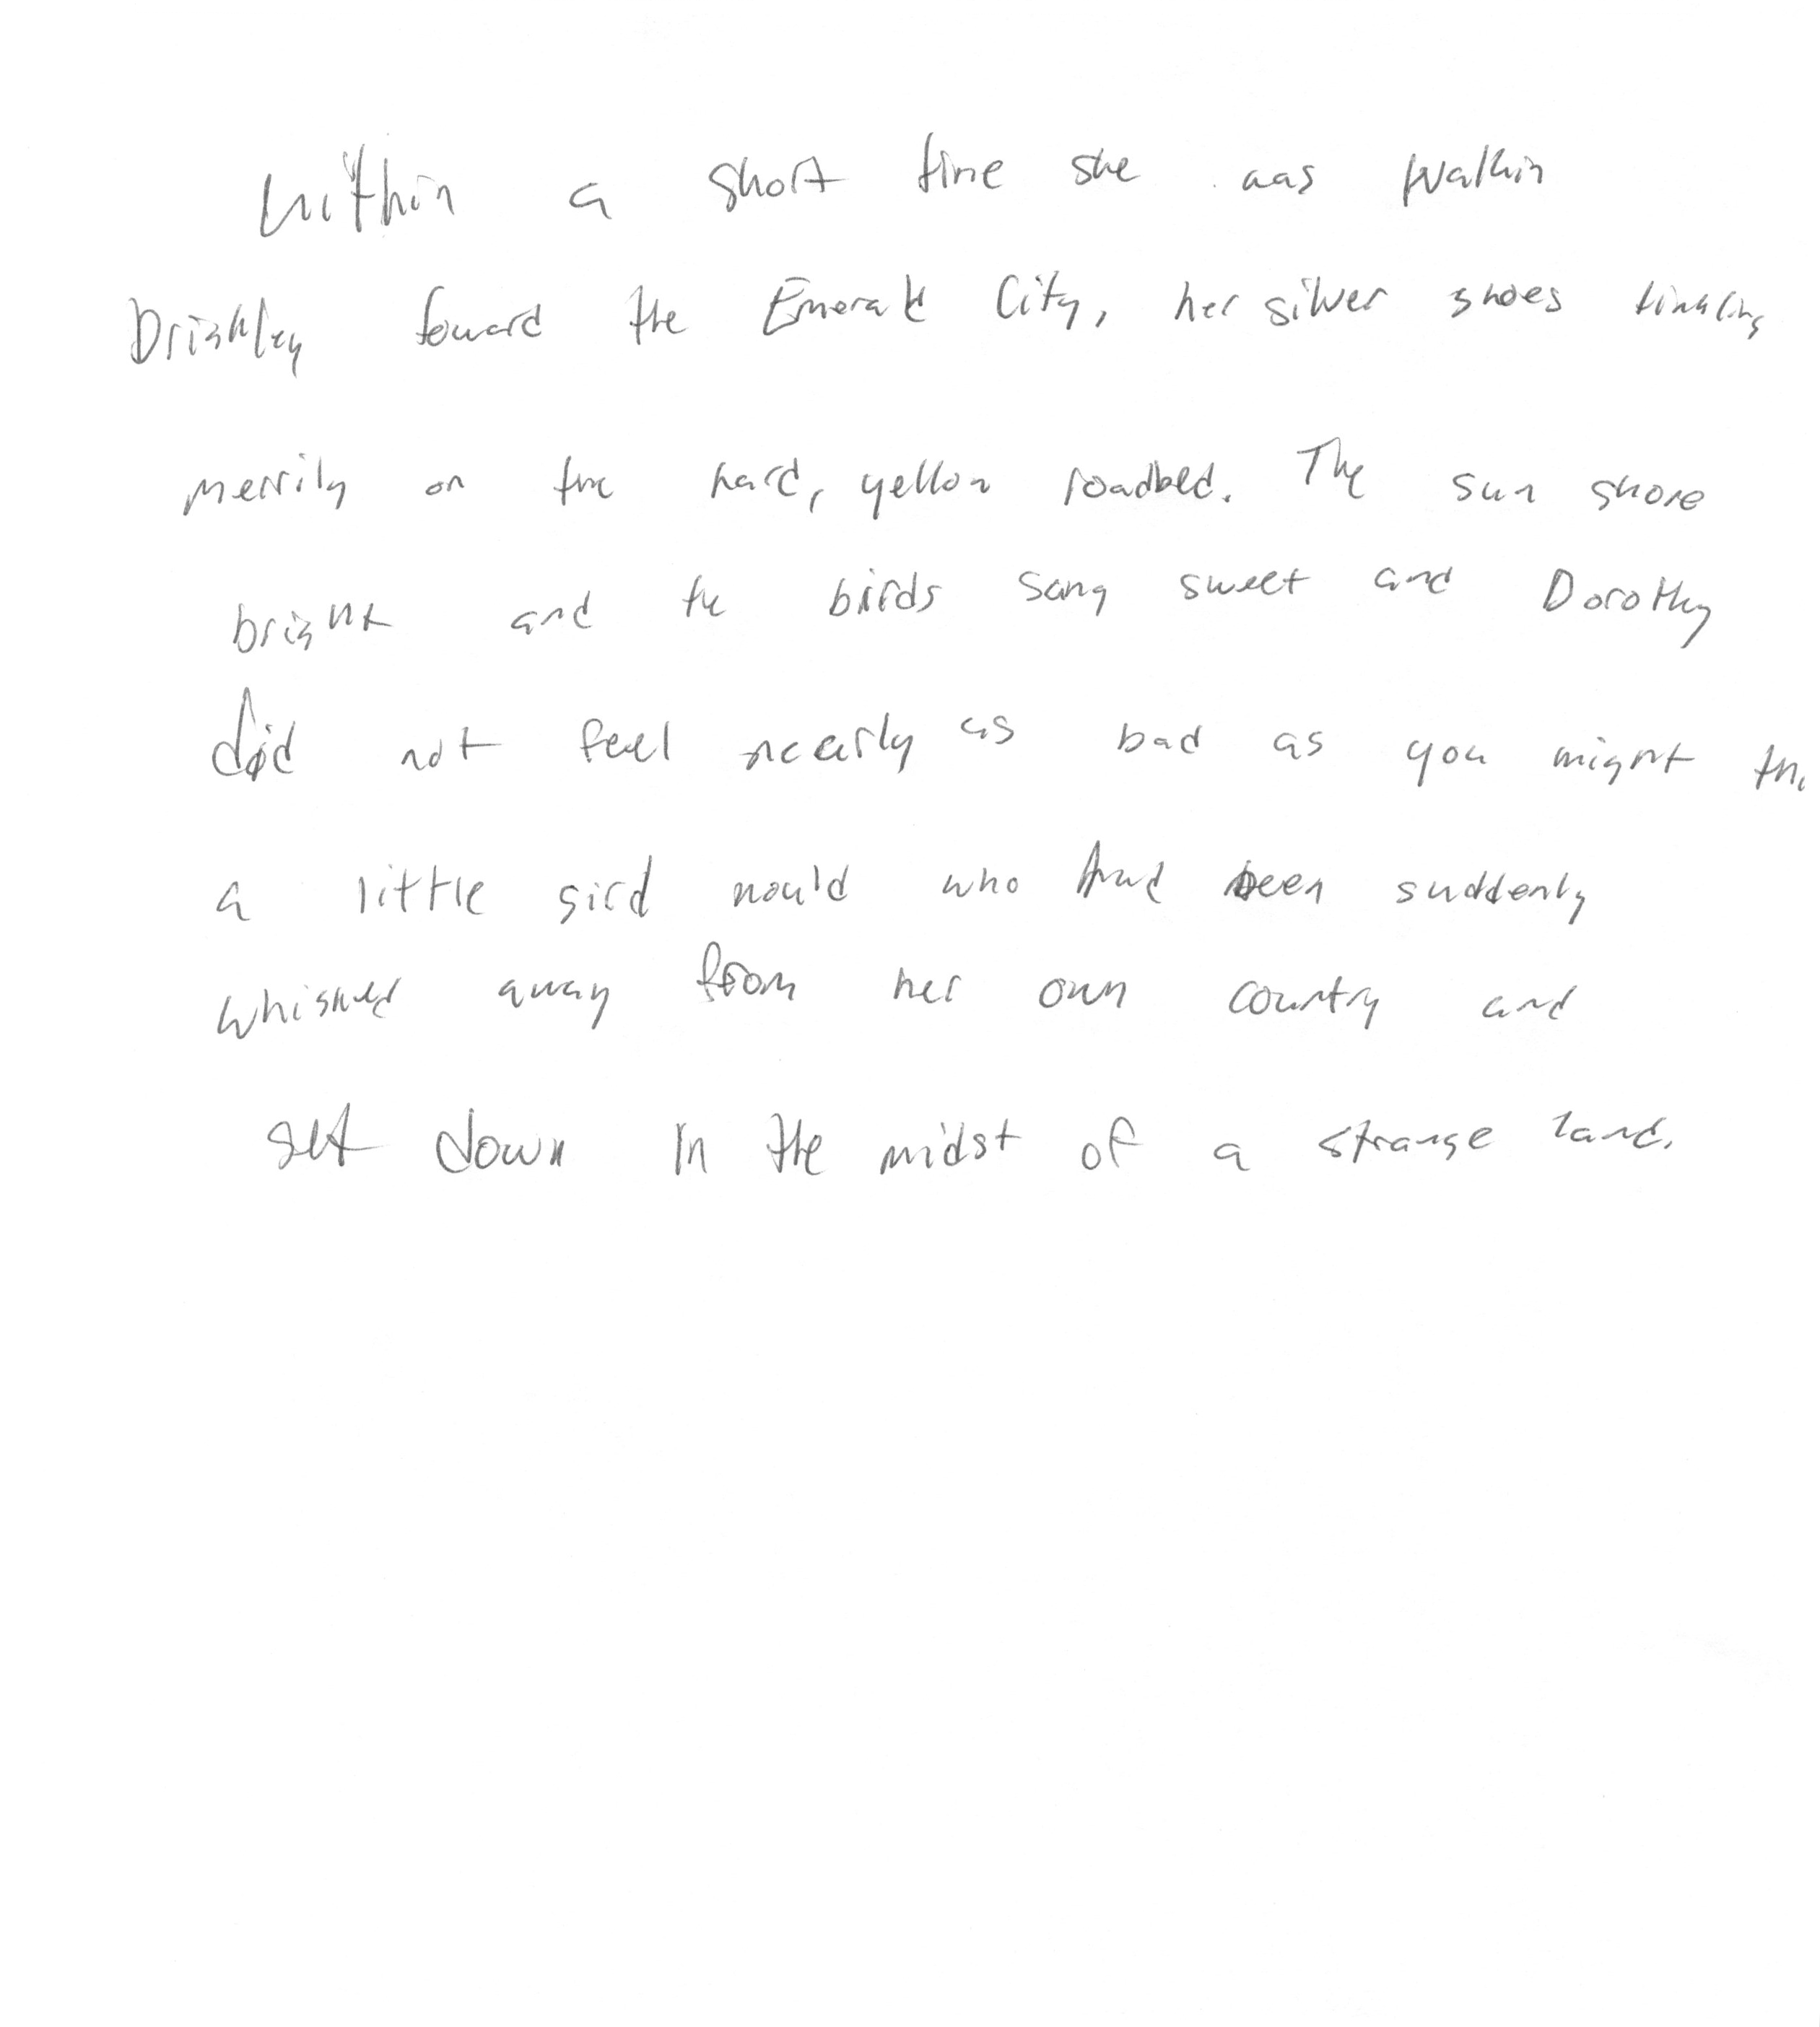 Within a short time she was walkin
Briskley toward the Emerald City, her silver shoes tinkling
merrily on the hard, yellow roadbed. The sun shone
bright and the birds sang sweet and Dorothy
did not feel nearly as bad as you might
a little girl would who had been suddenly
whisked away from her own country and
set down in the midst of a strange land.